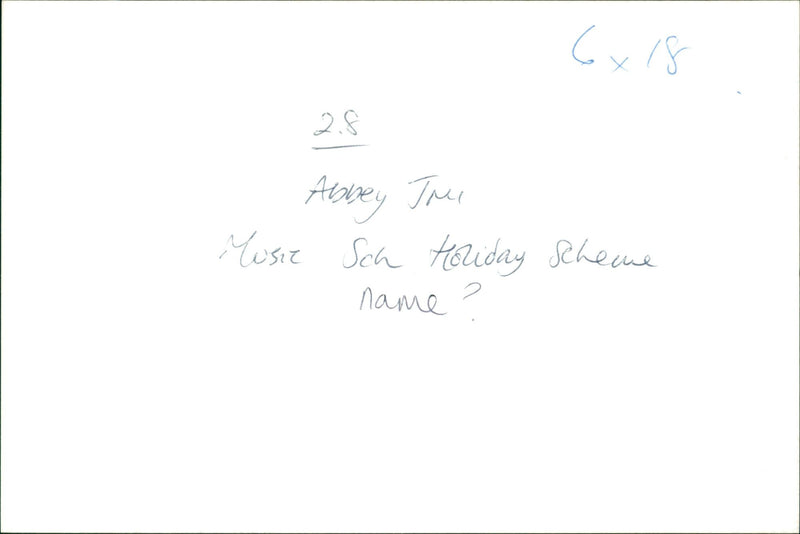 6 x 18
2.8
Abbey JMI
Music Sch Holiday Scheme
name?